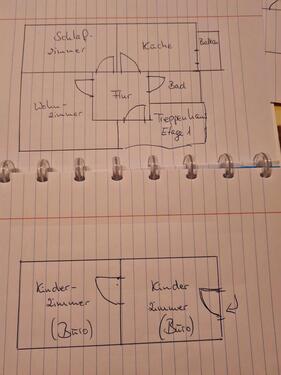 Schlaf-
zimmer
Küche
Balkon
Flur
Bad
Wohn-
zimmer
Treppenhaus
Etage 1
Kinder-
zimmer
(Büro)
Kinder
zimmer
(Büro)